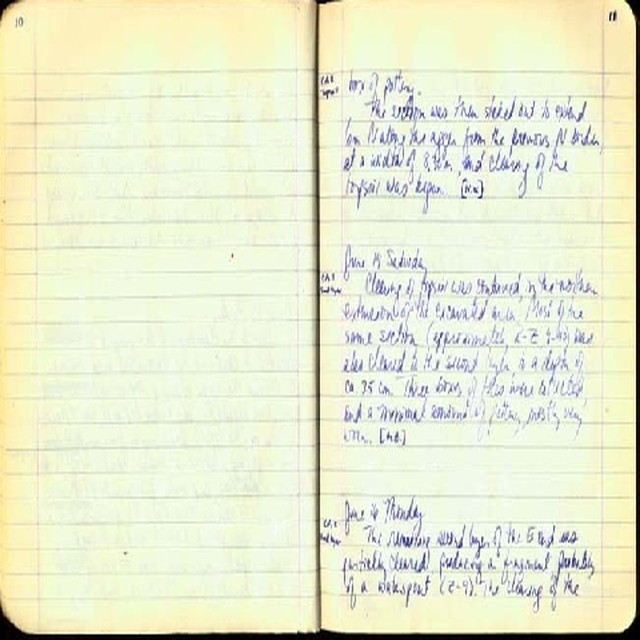 10
11
box of pottery.
The section was then staked out to extend
along the agger from the previous N border,
at a width of and clearing of the
topsoil was begun. [N.B.]
June 14 Saturday
Clearing of topsoil was continued, in the northern
extension of the excavated area. Most of the
same section (approximately was
also cleared to the second layer, to a depth of
ca. 35 cm. Three boxes of tiles were collected,
and a minimal amount of pottery, mostly very
worn. [N.B.]
June 16 Monday
The remaining second layer of the E end was
partially cleared, producing a fragment probably
of a waterspout (Z-9). The clearing of the